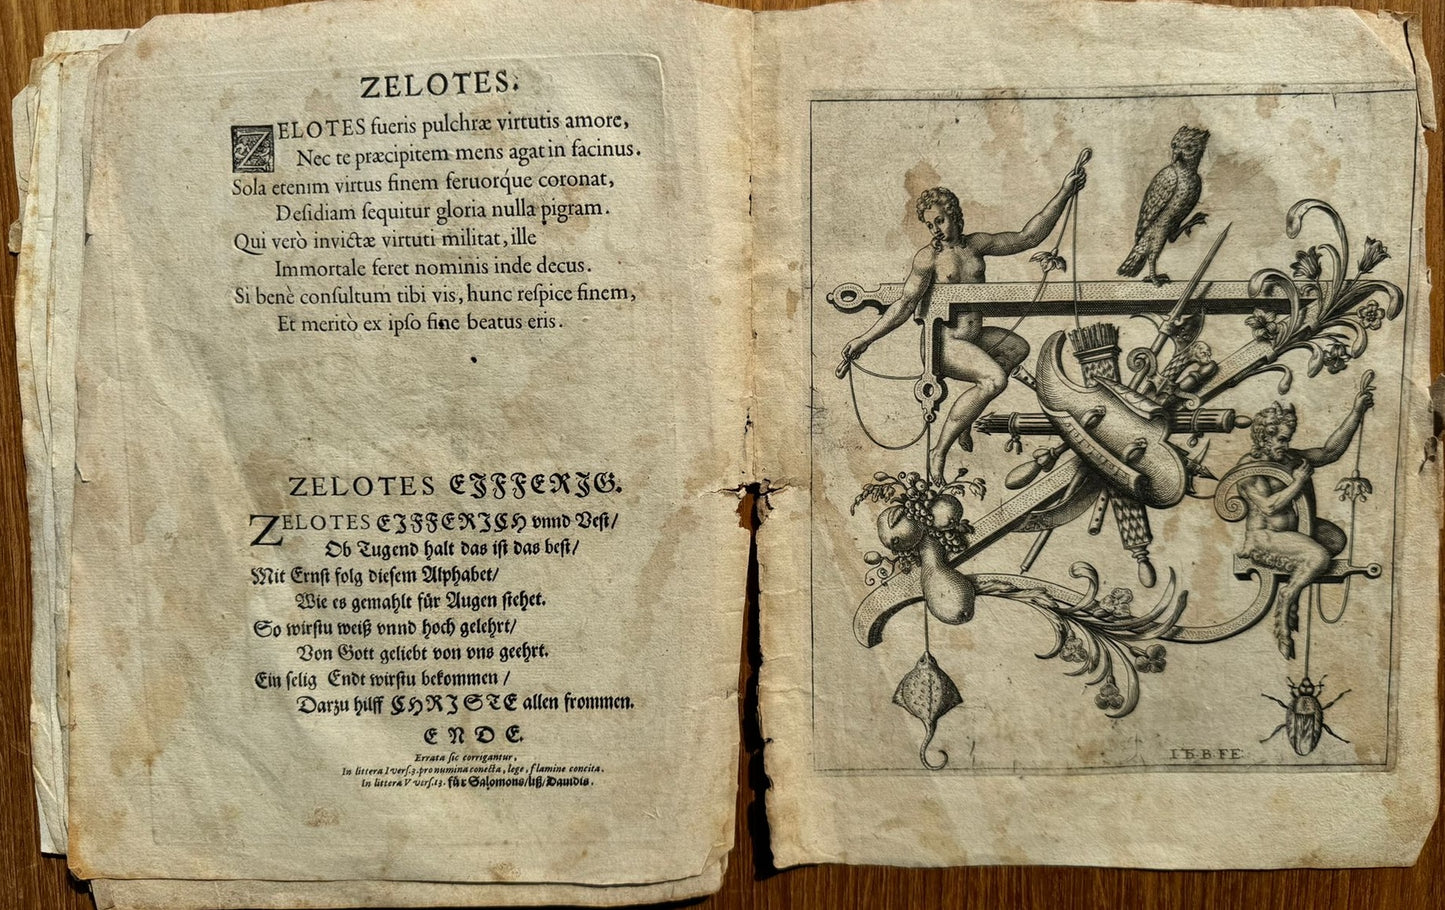 ZELOTES.
ZELOTES fueris pulchræ virtutis amore,
Nec te præcipitem mens agat in facinus.
Sola etenim virtus finem feruorq́ue coronat,
Deſidiam ſequitur gloria nulla pigram.
Qui verò invictæ virtuti militat, ille
Immortale feret nominis inde decus.
Si benè conſultum tibi vis, hunc reſpice finem,
Et meritò ex ipſo fine beatus eris.
ZELOTES EIFFERIG.
ZELOTES EIFFERICH vnnd Veſt/
Ob Tugend halt das iſt das beſt/
Mit Ernſt folg dieſem Alphabet/
Wie es gemahlt für Augen ſtehet.
So wirſtu weiß vnnd hoch gelehrt/
Von Gott geliebt von vns geehrt.
Ein ſelig Endt wirſtu bekommen /
Darzu hilff CHRISTE allen frommen.
ENDE.
Errata ſic corrigantur,
In littera I verſ. 3. pro numina conecta, lege, flamine concita.
In littera V verſ. 13. für Salomons/liß/Dauidis.
I TB·B·FE·